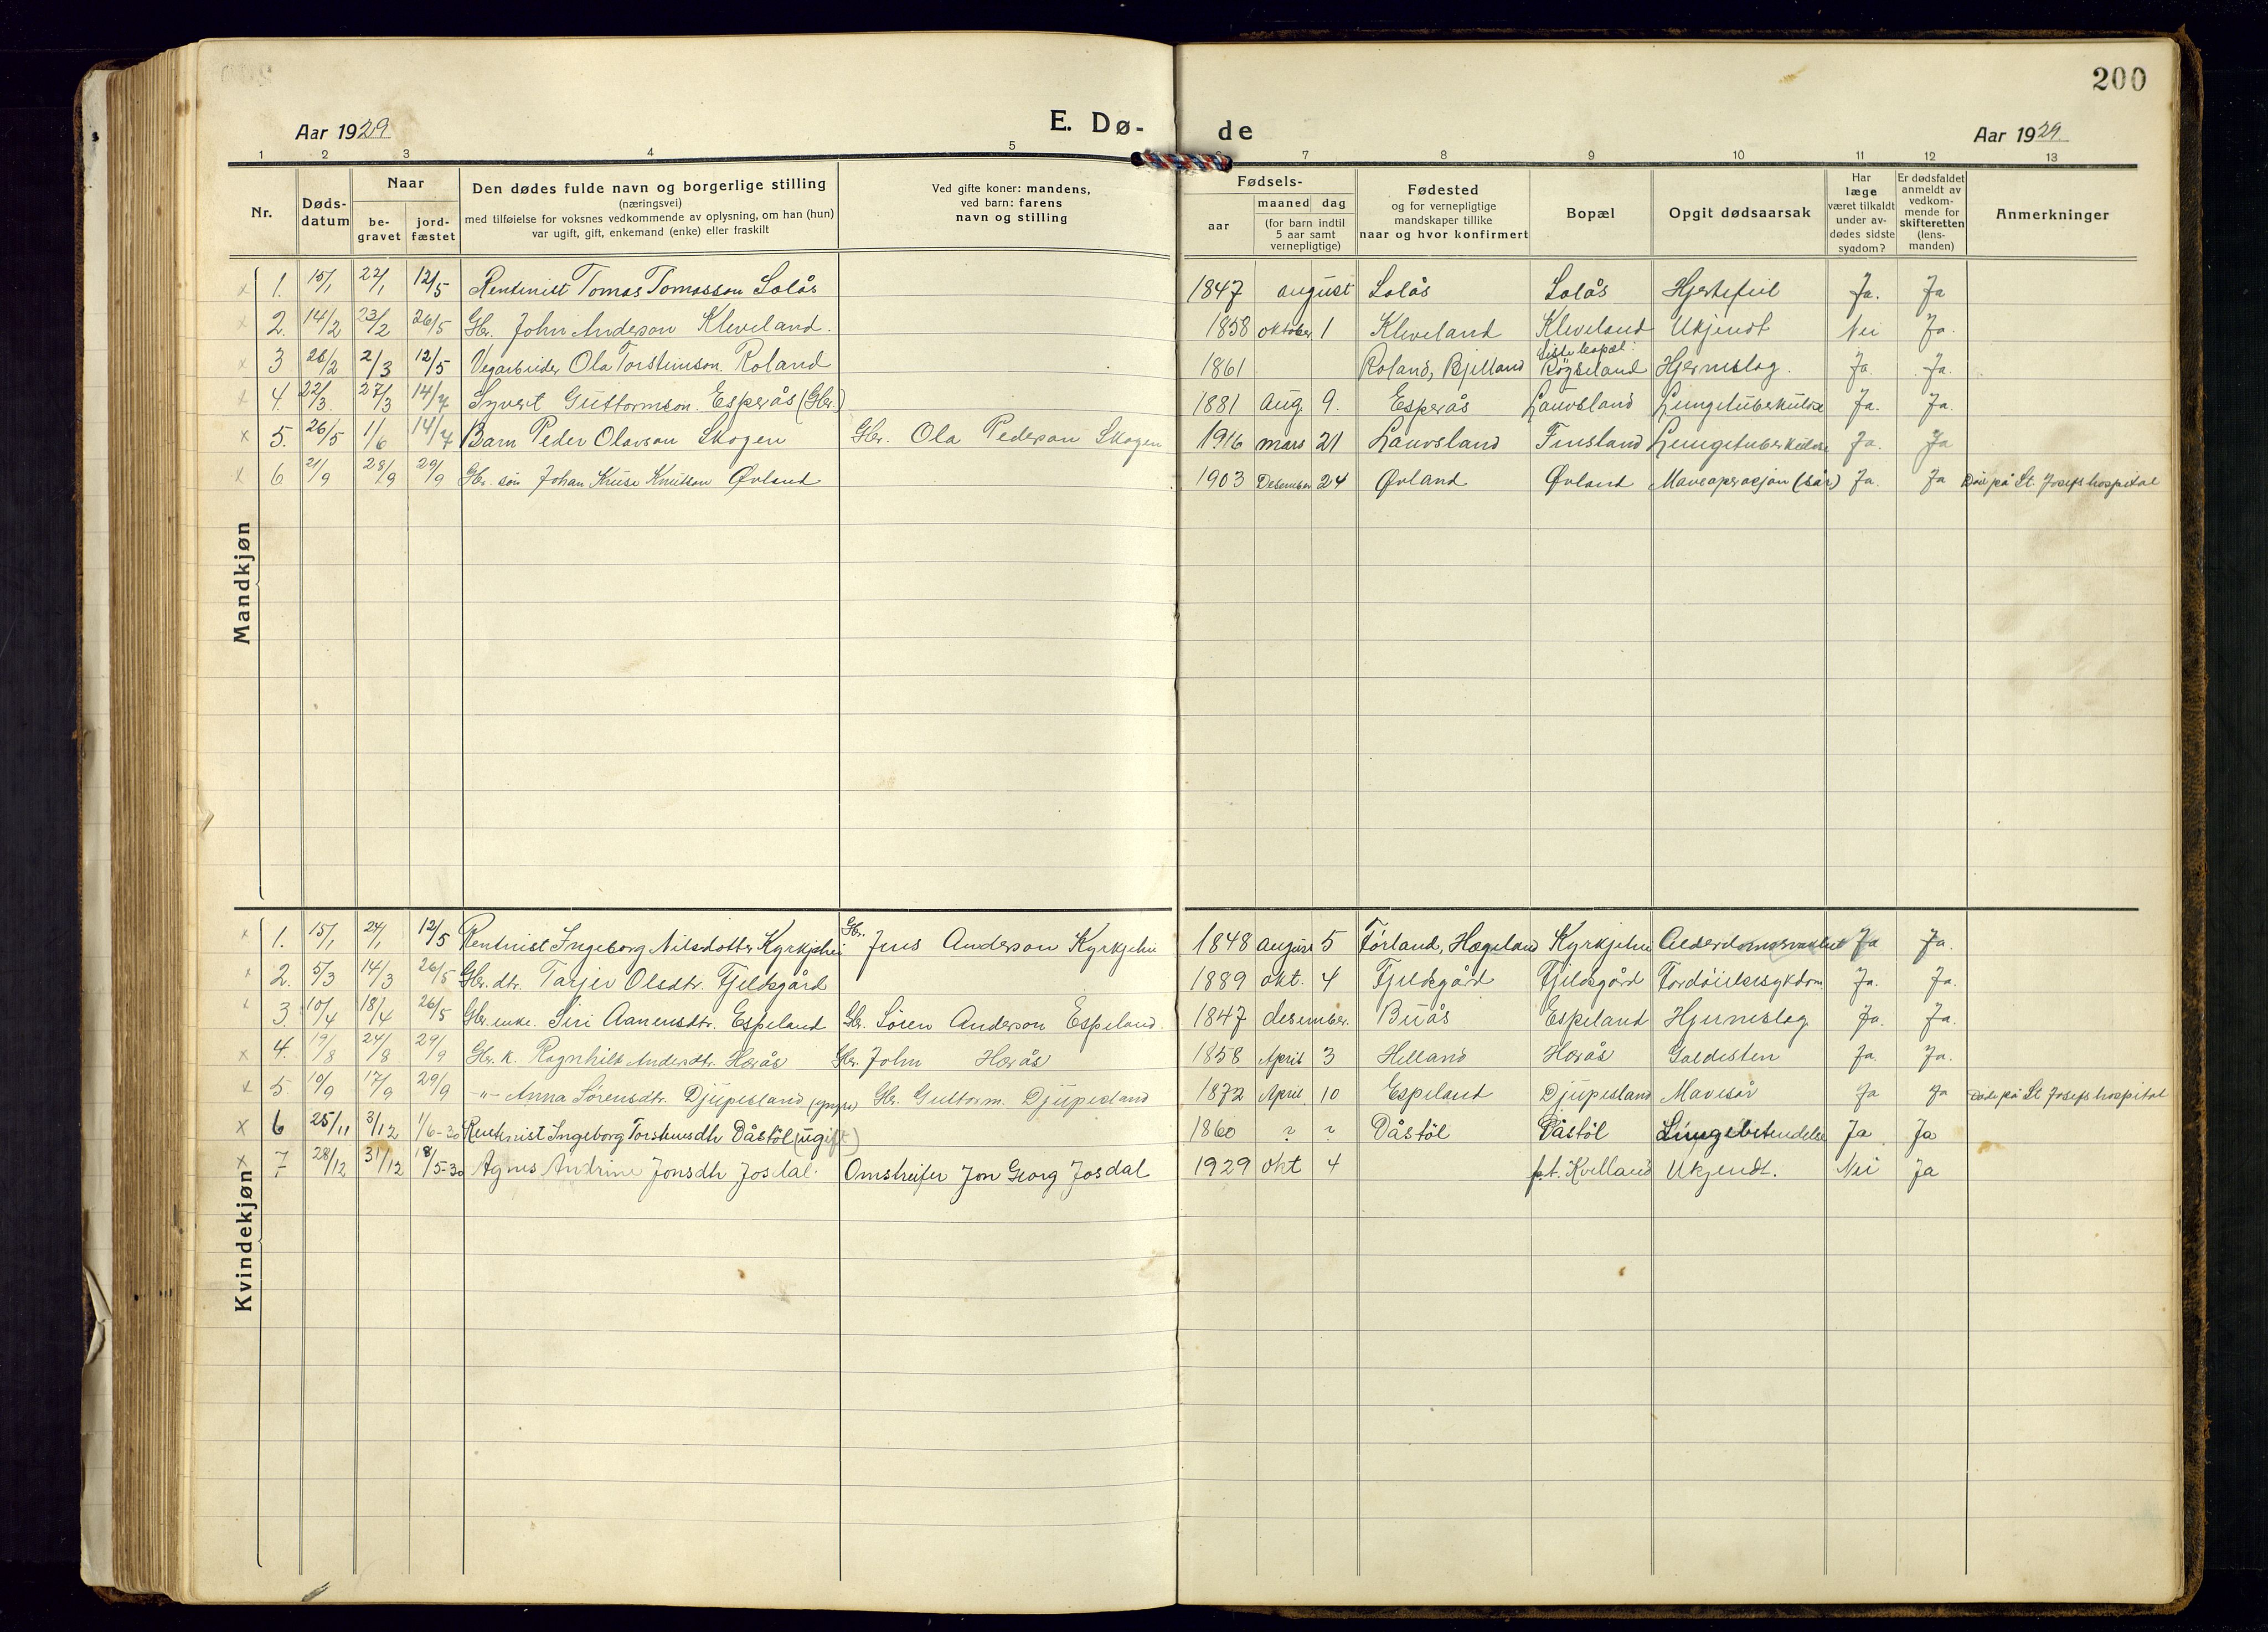 200
Aar 1929
E. Dø-
de
Aar 1929.
1 2 3 4 5 6 7 8 9 10 11 12 13
Nr.
Døds-
datum
Naar
be-
gravet
jord-
fæstet
Den dødes fulde navn og borgerlige stilling
(næringsvei)
med tilføielse for voksnes vedkommende av oplysning, om han (hun)
var ugift, gift, enkemand (enke) eller fraskilt
Ved gifte koner: mandens,
ved barn: farens
navn og stilling
Fødsels-
aar
maaned dag
(for barn indtil
5 aar samt
vernepligtige)
Fødested
og for vernepligtige
mandskaper tillike
naar og hvor konfirmert
Bopæl
Opgit dødsaarsak
Har
læge
været tilkaldt
under av-
dødes sidste
sygdom?
Er dødsfaldet
anmeldt av
vedkom-
mende for
skifteretten
(lens-
manden)
Anmerkninger
Mandkjøn
x 1. 15/1 22/1 12/5 Rentenist Tomas Tomasson Solås 1847 august Solås Solås Hjertefeil Ja. Ja
x 2. 14/2 23/2 26/5 Gbr. John Anderson Kleveland. 1858 oktober 1 Kleveland Kleveland Ukjendt Nei Ja.
Siste bopæl:
x 3 2/3 12/5 Vegarbeider Ola Torsteinson Roland 1861 Roland, Bjelland Røyseland Hjerneslag. Ja. Ja.
x 4. 22/3. 27/3 14/7 Syvert Guttormson Esperås (Gbr.) 1881 Aug. 9. Esperås Lauvsland Lungetuberkulose Ja. Ja.
x 5. 26/5 1/6 14/7 Barn Peder Olavson Skogen Gbr. Ola Pederson Skogen 1916 mars 21 Lauvsland Finsland Lungetuberkulose Ja. Ja
x 6. 21/9 28/9 29/9 Gbr. søn Johan Kruse Knutson Øvland 1903 Desember 24 Øvland Øvland Maveoperasjon (sår) Ja. Ja Døde på St. Josefs hospital
Kvindekjøn
x 1. 15/1 24/1 12/5 Rentenist Ingeborg Nilsdotter Kyrkjehei Gbr. Jens Anderson Kyrkjehei 1848 august 5 Førland, Hægeland Kyrkjehei Alderdomssvakhet Ja Ja.
x 2. 5/3 14/3 26/5 Gbr. dtr. Tarjer Olsdtr. Fjeldsgård 1889 okt. 4 Fjeldsgård Fjeldsgård Fordøielsessykdom Ja. Ja.
3. 10/4 18/4 26/5 Gbr. enke. Siri Aanensdtr. Espeland Gbr. Søren Anderson Espeland. 1847 desember. Buås Espeland Hjerneslag Ja. Ja.
x 4. 19/8 24/8 29/9 Gbr. k. Ragnhild Andersdtr. Horås Gbr. John Horås 1858 April 3 Helland Horås Galdesten Ja. Ja.
x 5. 10/9 17/9 29/9 -"- Anna Sørensdtr. Djupesland (yngre) Gbr. Guttorm. Djupesland 1872 April 10 Espeland Djupesland Mavesår Ja Ja Døde på St Josefs hospital
x 6 25/11 3/12 1/6-30 Rentenist Ingeborg Torsteinsdtr Dåstöl (ugift) 1860 ? ? Dåstöl Dåstöl Lungebetendelse Ja Ja
x 7 28/12 31/12 18/5-30 Agnes Andrine Jonsdtr Josdal. Omstreifer Jon Georg Josdal 1929 okt 4 p.t. Kvelland Ukjendt. Nei Ja